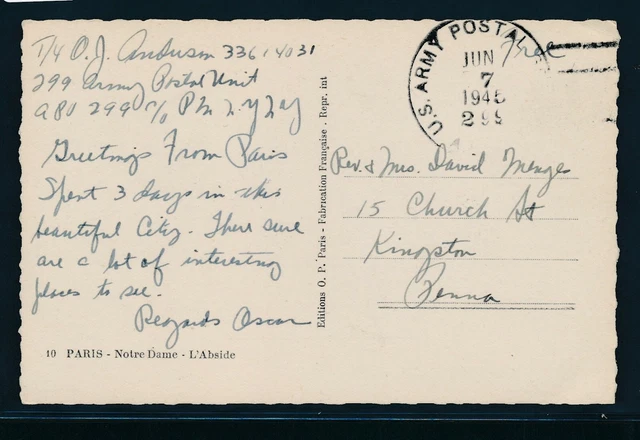 T/4 O. J. Anderson 33614031
299 Army Postal Unit
APO 299 c/o P.M. N.Y. N.Y.
Greetings From Paris
Spent 3 days in this
beautiful City. There sure
are a lot of interesting
places to see.
Regards Oscar
10 PARIS - Notre Dame - L'Abside
Editions O. P. Paris - Fabrication Française . Repr. int
U.S. ARMY POSTAL
JUN
7
1945
299
Free
Rev. & Mrs. David Menges
15 Church St
Kingston
Penna